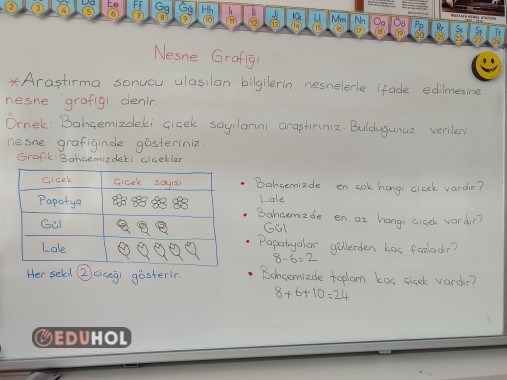 2 3 4 5 6 7 8 9 10 11 12 13 14 15 16 17 18 19 20 21 22 23 24
Dd Ee Ff Gg Ğğ Hh Iı İi Jj Kk Ll Mm Nn Oo Öö Pp Rr Ss Şş Tt
Nesne Grafiği
*Araştırma sonucu ulaşılan bilgilerin nesnelerle ifade edilmesine
nesne grafiği denir.
Örnek: Bahçemizdeki çiçek sayılarını araştırınız. Bulduğunuz verileri
nesne grafiğinde gösteriniz.
Grafik: Bahçemizdeki çiçekler
Çiçek Çiçek sayısı
Papatya
Gül
Lale
Her şekil 2 çiçeği gösterir.
• Bahçemizde en çok hangi çiçek vardır?
Lale
• Bahçemizde en az hangi çiçek vardır?
Gül
• Papatyalar güllerden kaç fazladır?
8-6=2
• Bahçemizde toplam kaç çiçek vardır?
8+6+10=24
EDUHOL